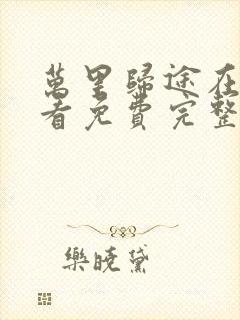 萬里歸途在
看免費完整
樂曉黛